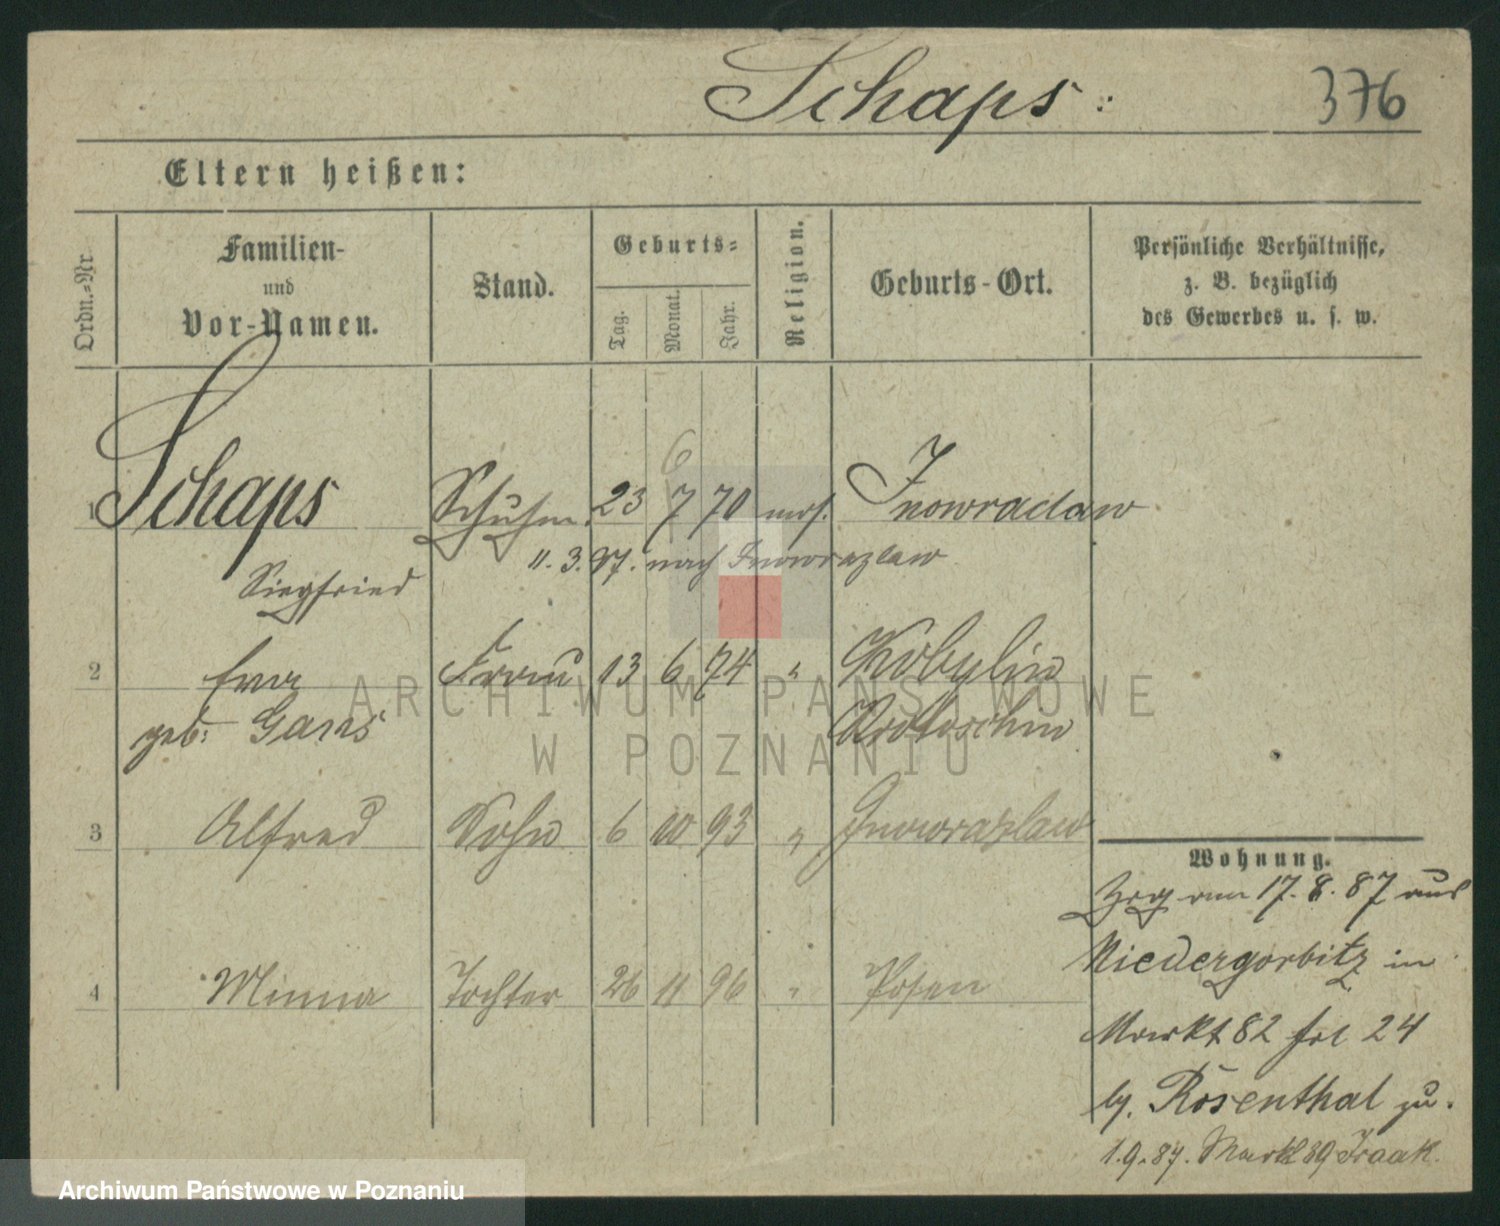 Schaps:
376
Eltern heißen:
Ordn.-Nr.
Familien-
und
Vor-Namen.
Stand.
Geburts-
Tag.
Monat.
Jahr.
Religion.
Geburts-Ort.
Persönliche Verhältnisse,
z. B. bezüglich
des Gewerbes u. s. w.
6
1 Schaps Schuhm. 23 7 70 mos. Inowraclaw
11. 3. 97. nach Inowrazlaw
Siegfried
2 Eva Frau 13 6 74 " Kobylin
geb: Krotoschin
3 Alfred Sohn 6 10 93 " Inowrazlaw
4 Minna Tochter 26 11 96 " Posen
Wohnung.
Zog am 17. 8. 87 aus
Niedergorbitz in
Markt 82 frl 24
by. Rosenthal zu.
1. 9. 87. Markt 89
ARCHIWUM PAŃSTWOWE
W POZNANIU
Archiwum Państwowe w Poznaniu